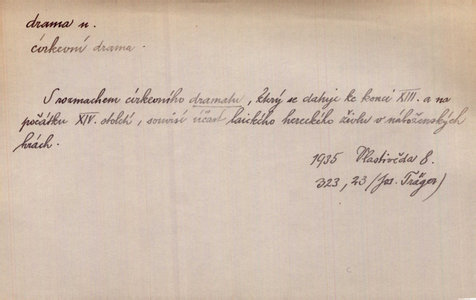 drama n.
církevní drama.
S rozmachem církevního dramatu, který se datuje ke konci XIII. a na
počátku XIV. století, souvisí účast laického hereckého živlu v náboženských
hrách.
1935 Vlastivěda 8.
323, 23 (Jos. Träger)